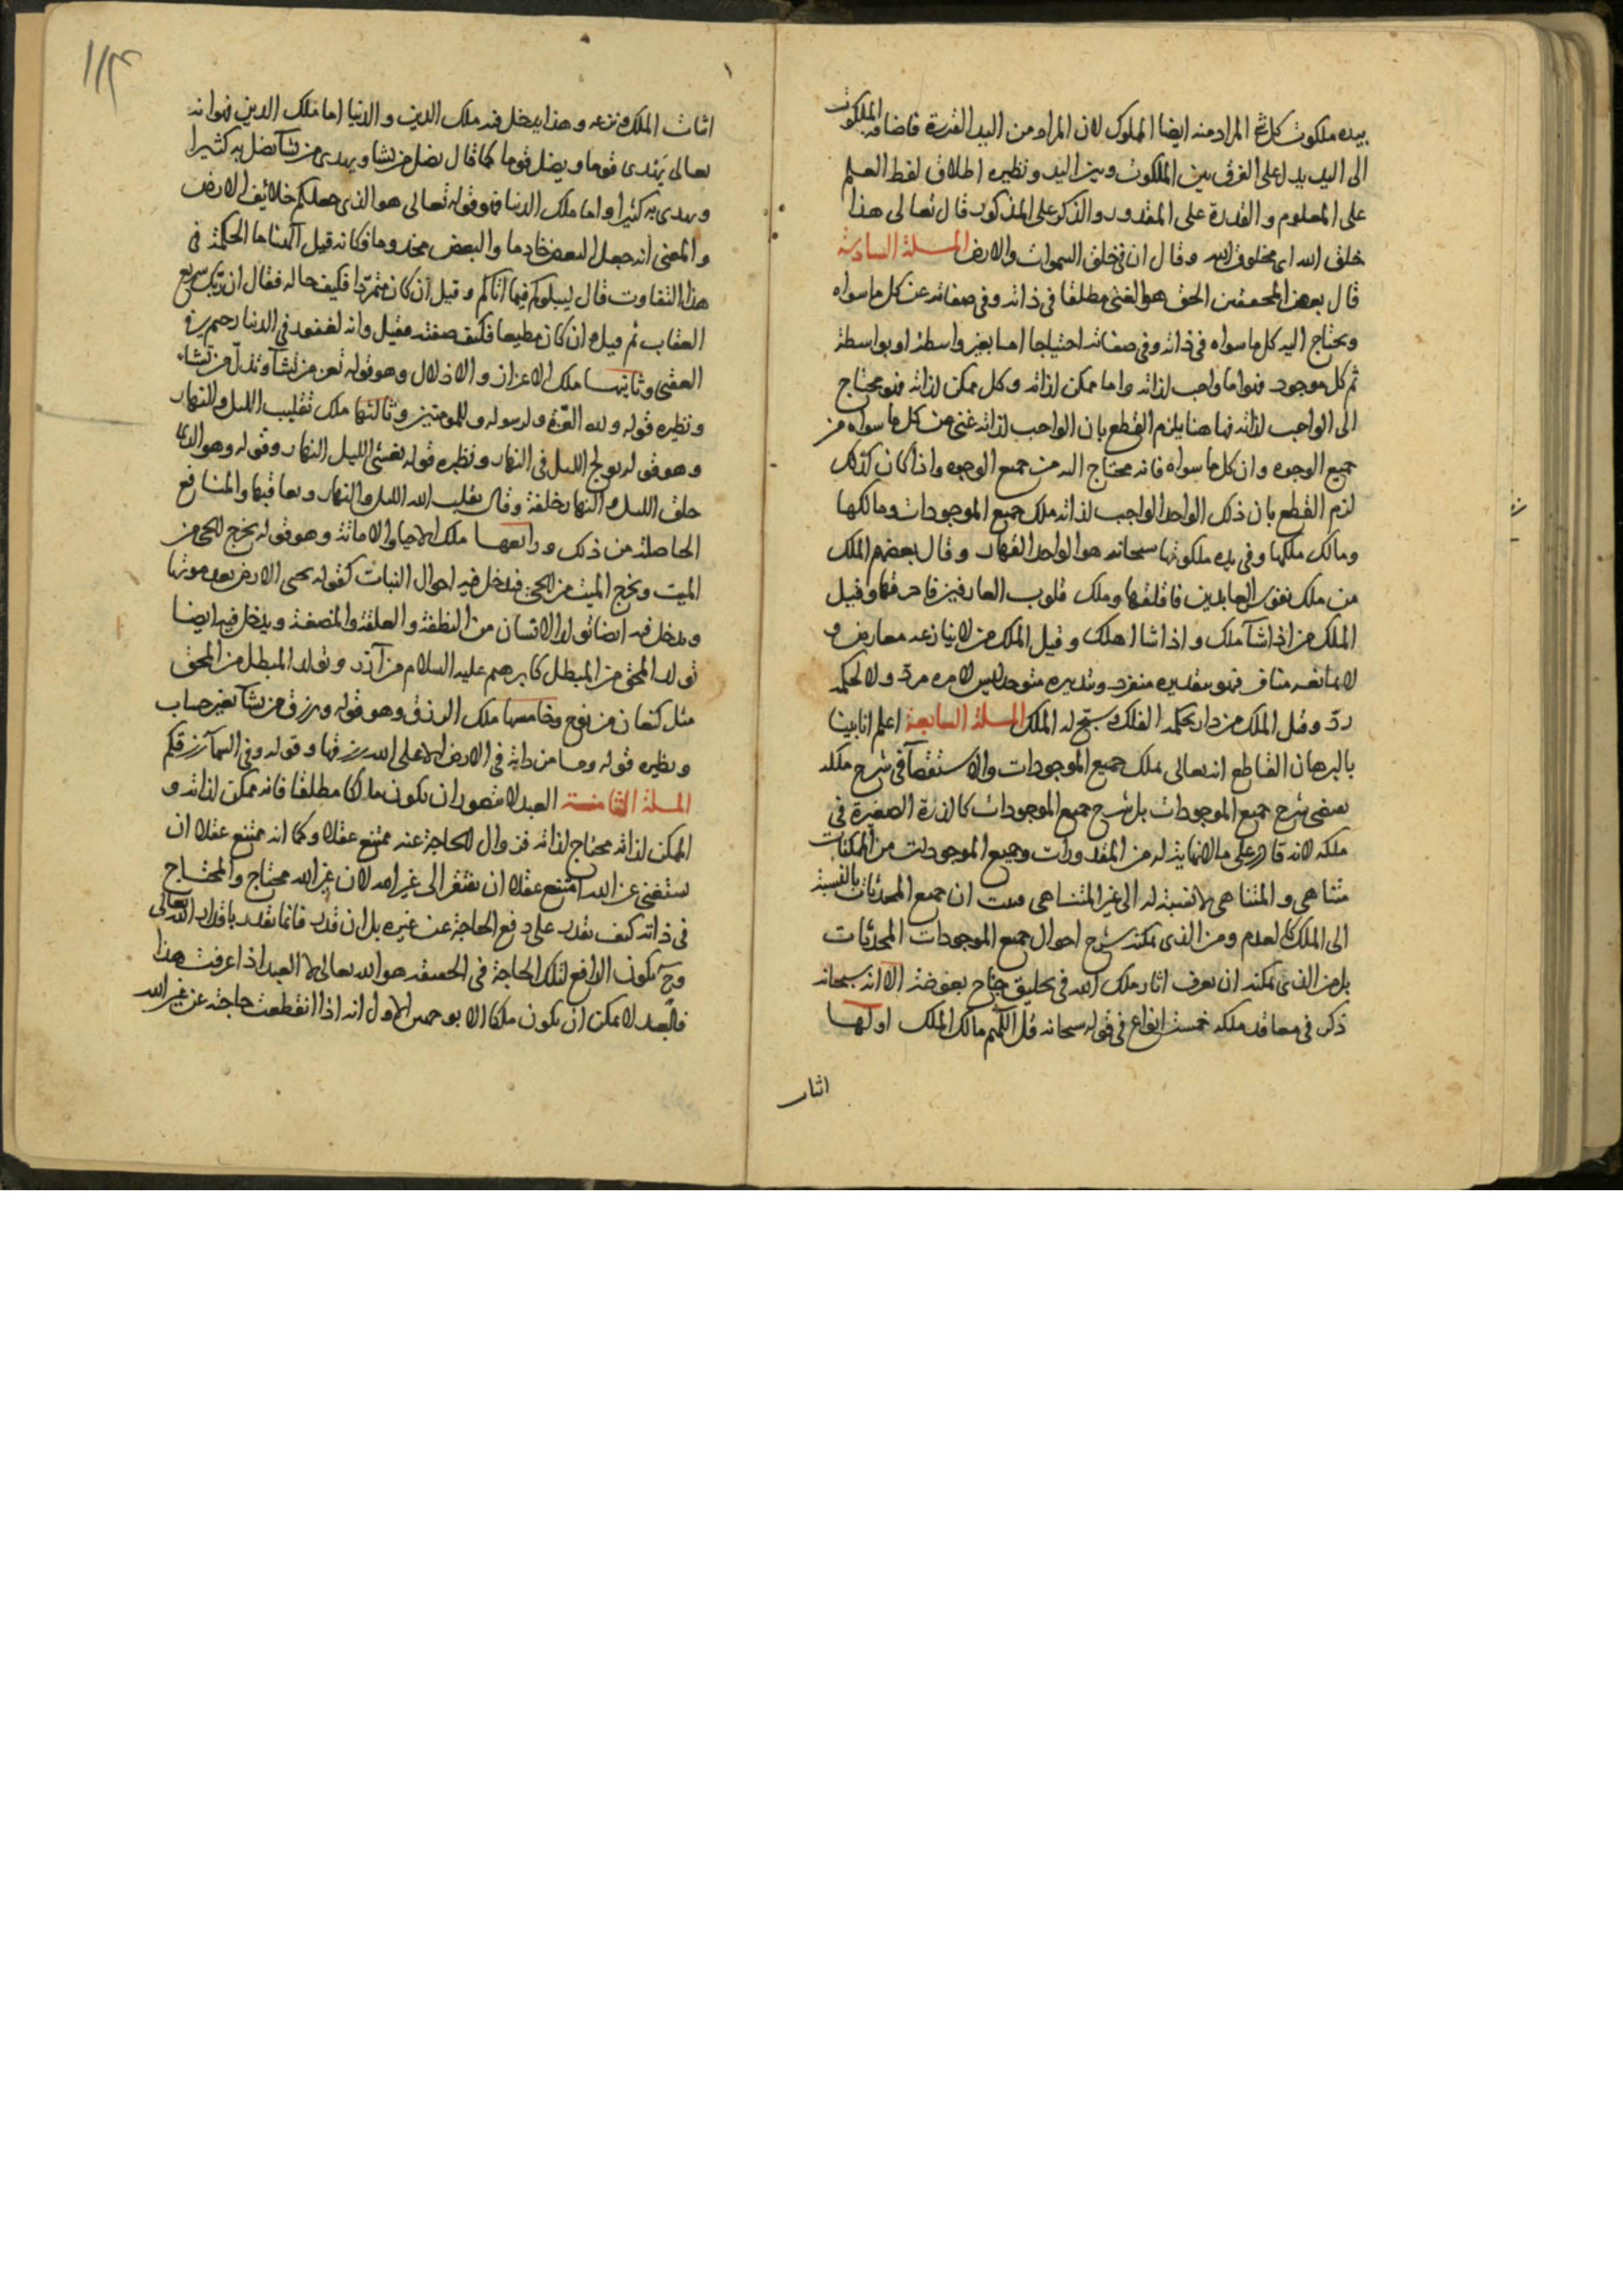 بيده ملكوت كل شئ المراد منه ايضا المملوك لان المراد من اليد القدرة فاضافة الملكوت
الى اليد يدل على الفرق بين الملكوت وبين اليد ونظيره اطلاق لفظ العلم
على المعلوم والقدرة على المقدور والذكر على المذكور قال تعالى هذا
خلق الله اى مخلوق الله وقال ان فى خلق السموات والارض المسلة السادسة
قال بعض المحققين الحق هو الغنى مطلقا فى ذاته وفى صفاته عن كل ما سواه
ويحتاج اليه كل ما سواه فى ذاته وفى صفاته احتياجا اما بغير واسطة او بواسطة
ثم كل موجود فهو اما واجب لذاته واما ممكن لذاته وكل ممكن لذاته فهو محتاج
الى الواجب لذاته فها هنا يلزم القطع بان الواجب لذاته غنى من كل ما سواه من
جميع الوجوه وان كل ما سواه فانه محتاج اليه من جميع الوجوه واذا كان كذلك
لزم القطع بان ذلك الواحد الواجب لذاته ملك جميع الموجودات ومالكها
ومالك ملكها وفى يده ملكوتها سبحانه هو الواحد القهار وقال بعضهم الملك
من ملك نفوس العابدين فاقلقها وملك قلوب العارفين فاحرقها وقيل
الملك من اذا شآ ملك واذا شا اهلك وقيل الملك من لا ينازعه معارض و
لا يمانعه مناقر فهو بتقديره منفرد وبتدبيره متوحد ليس لامره مرد ولا لحكمه
رد وقيل الملك من دار بحكمه الفلك وسبح له الملك المسلة السابعة اعلم انا بينا
بالبرهان القاطع انه تعالى يملك جميع الموجودات والاستقصآ فى شرح ملكه
يقتضى شرح جميع الموجودات بل شرح جميع الموجودات كالذرة الصغيرة فى
ملكه لانه قادر على ما لا نهاية له من المقدورات وجميع الموجودات من الممكنات
متناهى والمتناهى لا نسبة له الى غير المتناهى فثبت ان جميع المحدثات بالنسبة
الى الملك كالعدم ومن الذى يمكنه شرح احوال جميع الموجودات المحدثات
بل من الذى يمكنه ان يعرف اثار ملك الله فى تخليق جناح بعوضة الا انه سبحانه
ذكر فى معاقد ملكه خمسة انواع فى قوله سبحانه قل اللهم مالك الملك اولها
اثبات
اثبات الملك ونزعه وهذا يدخل فيه ملك الدين والدنيا اما ملك الدين فهو انه
تعالى يهدى قوما ويضل قوما كما قال يضل من يشا ويهدى من يشآ يضل به كثيرا
ويهدى به كثيرا واما ملك الدنيا فهو قوله تعالى هو الذى جعلكم خلائف الارض
والمعنى انه جعل البعض خادما والبعض مخدوما فكانه قيل الهنا ما الحكمة فى
هذا التفاوت قال ليبلوكم فيما اتاكم وقيل ان كان متمردا فكيف حاله فقال ان ربك سريع
العقاب ثم قيل وان كان مطيعا فكيف صفته فقيل وانه لغفور فى الدنيا رحيم فى
العقبى وثانيها ملك الاعزاز والاذلال وهو قوله تعز من تشآ وتذل من تشاء
ونظيره قوله ولله العزة ولرسوله وللمومنين وثالثها ملك تقليب الليل والنهار
وهو قوله يولج الليل فى النهار ونظيره قوله يغشى الليل النهار وقوله وهو الذى
خلق الليل والنهار خلفة وقال يقلب الله الليل والنهار وتعاقبها والمنافع
الحاصلة من ذلك ورابعها ملك الاحيا والاماتة وهو قوله يخرج الحى من
الميت ويخرج الميت من الحى فيدخل فيه احوال النبات كقوله يحيى الارض بعد موتها
ويدخل فيه ايضا تولد الانسان من النطفة والعلقة والمضغة ويدخل فيه ايضا
تولد المحق من المبطل كابرهيم عليه السلام من آزر وتولد المبطل من المحق
مثل كنعان من نوح وخامسها ملك الرزق وهو قوله ويرزق من يشآ بغير حساب
ونظيره قوله وما من دابة فى الارض الا على الله رزقها وقوله وفى السمآ رزقكم
المسلة الثامنة العبد لا يتصور ان يكون ملكا مطلقا فانه ممكن لذاته و
الممكن لذاته محتاج لذاته فزوال الحاجة عنه ممتنع عقلا وكما انه ممتنع عقلا ان
يستغنى عن الله امتنع عقلا ان يفتقر الى غير الله لان غير الله محتاج والمحتاج
فى ذاته كيف يقدر على دفع الحاجة عن غيره بل ان قدر فانما يقدر باقدار الله تعالى
وح يكون الدافع لتلك الحاجة فى الحقيقة هو الله تعالى لا العبد اذا عرفت هذا
فالعبد لا يمكن ان يكون ملكا الا بوجهين الاول انه اذا انقطعت حاجته عن غير الله